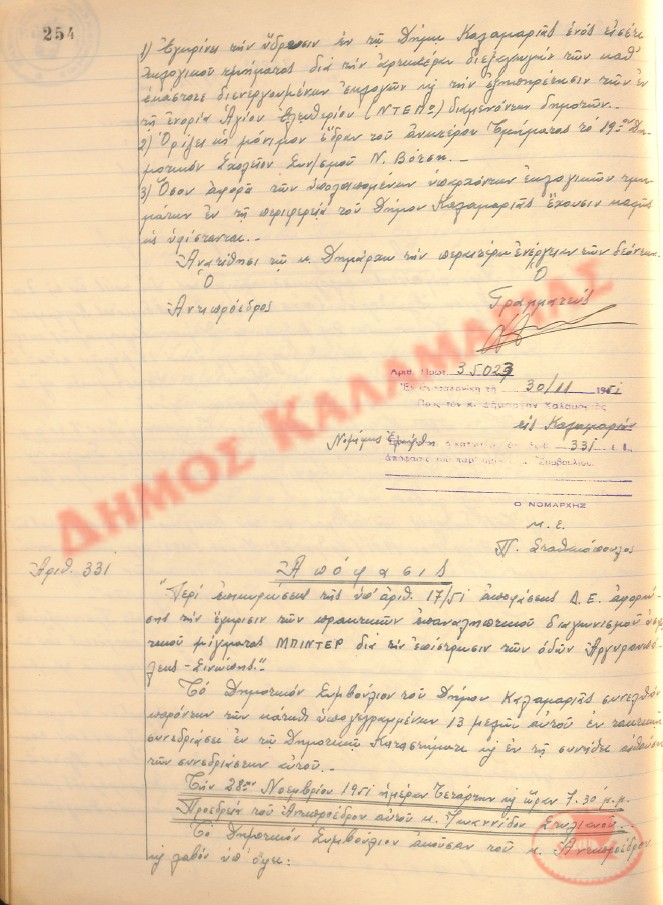 254
1) Ἐγκρίνει τὴν ἵδρυσιν ἐν τῷ Δήμῳ Καλαμαριᾶς ἑνὸς εἰσέτι
ἐκλογικοῦ τμήματος διὰ τὴν διεξαγωγὴν τῶν καθ'
ἑκάστοτε διενεργουμένων ἐκλογῶν κ τὴν ἐξυπηρέτησιν τῶν ἐν
τῇ ἐνορίᾳ Ἁγίου Ἐλευθερίου διαμενόντων δημοτῶν.-
2) Ὁρίζει ὡς μόνιμον ἕδραν τοῦ ἀνωτέρου τμήματος τὸ 19ον Δη-
μοτικὸν Σχολεῖον Συν/σμοῦ Ν. Βότση.-
3) Ὅσον ἀφορᾶ τῶν ὑπολοιπομένων ὑπαρχόντων ἐκλογικῶν τμη-
μάτων ἐν τῇ περιφερείᾳ τοῦ Δήμου Καλαμαριᾶς ἔχουσιν καλῶς
ὡς ὑφίστανται.-
Ἀνατίθησι τῷ κ. Δημάρχῳ τὴν περαιτέρω ἐνέργειαν τῶν δεόντων.
Ὁ Ὁ
Ἀντιπρόεδρος Γραμματεὺς
ΔΗΜΟΣ ΚΑΛΑΜΑΡΙΑΣ
Ἀριθ. Πρωτ. 35023
Ἐν Θεσσαλονίκῃ τῇ 30/11 1951
Πρὸς τὸν κ. Δήμαρχον Καλαμαριᾶς
εἰς Καλαμαριὰν
Νομίμως 331
ἀπόφασις τοῦ Συμβουλίου
Ο ΝΟΜΑΡΧΗΣ
Μ.Ε.
Π. Σταθακόπουλος
Ἀριθ. 331 Ἀπόφασις
"Περὶ ἐπικυρώσεως τῆς ὑπ' ἀριθ. 17/51 ἀποφάσεως Δ.Ε. ἀφορώ-
σης τὴν ἔγκρισιν τῶν πρακτικῶν ἐπαναληπτικοῦ διαγωνισμοῦ ἀσφαλ-
τικοῦ μίγματος ΜΠΙΝΤΕΡ διὰ τὴν ἐπίστρωσιν τῶν ὁδῶν Ἀργυρουπό-
λεως - Σινώπης."
Τὸ Δημοτικὸν Συμβούλιον τοῦ Δήμου Καλαμαριᾶς συνελθὸν
παρόντων τῶν κάτωθι ὑπογεγραμμένων 13 μελῶν αὐτοῦ ἐν τακτικῇ
συνεδριάσει ἐν τῷ Δημοτικῷ Καταστήματι κ ἐν τῇ συνήθει αἰθούσῃ
τῶν συνεδριάσεων αὐτοῦ.-
Τὴν 28ην Νοεμβρίου 1951 ἡμέραν Τετάρτην κ ὥραν 7.30' μ.μ.
Προεδρείᾳ τοῦ Ἀντιπροέδρου αὐτοῦ κ. Ἰωαννίδου Στυλιανοῦ.
Τὸ Δημοτικὸν Συμβούλιον ἀκοῦσαν τοῦ κ. Ἀντιπροέδρου
κ λαβὸν ὑπ' ὄψει: